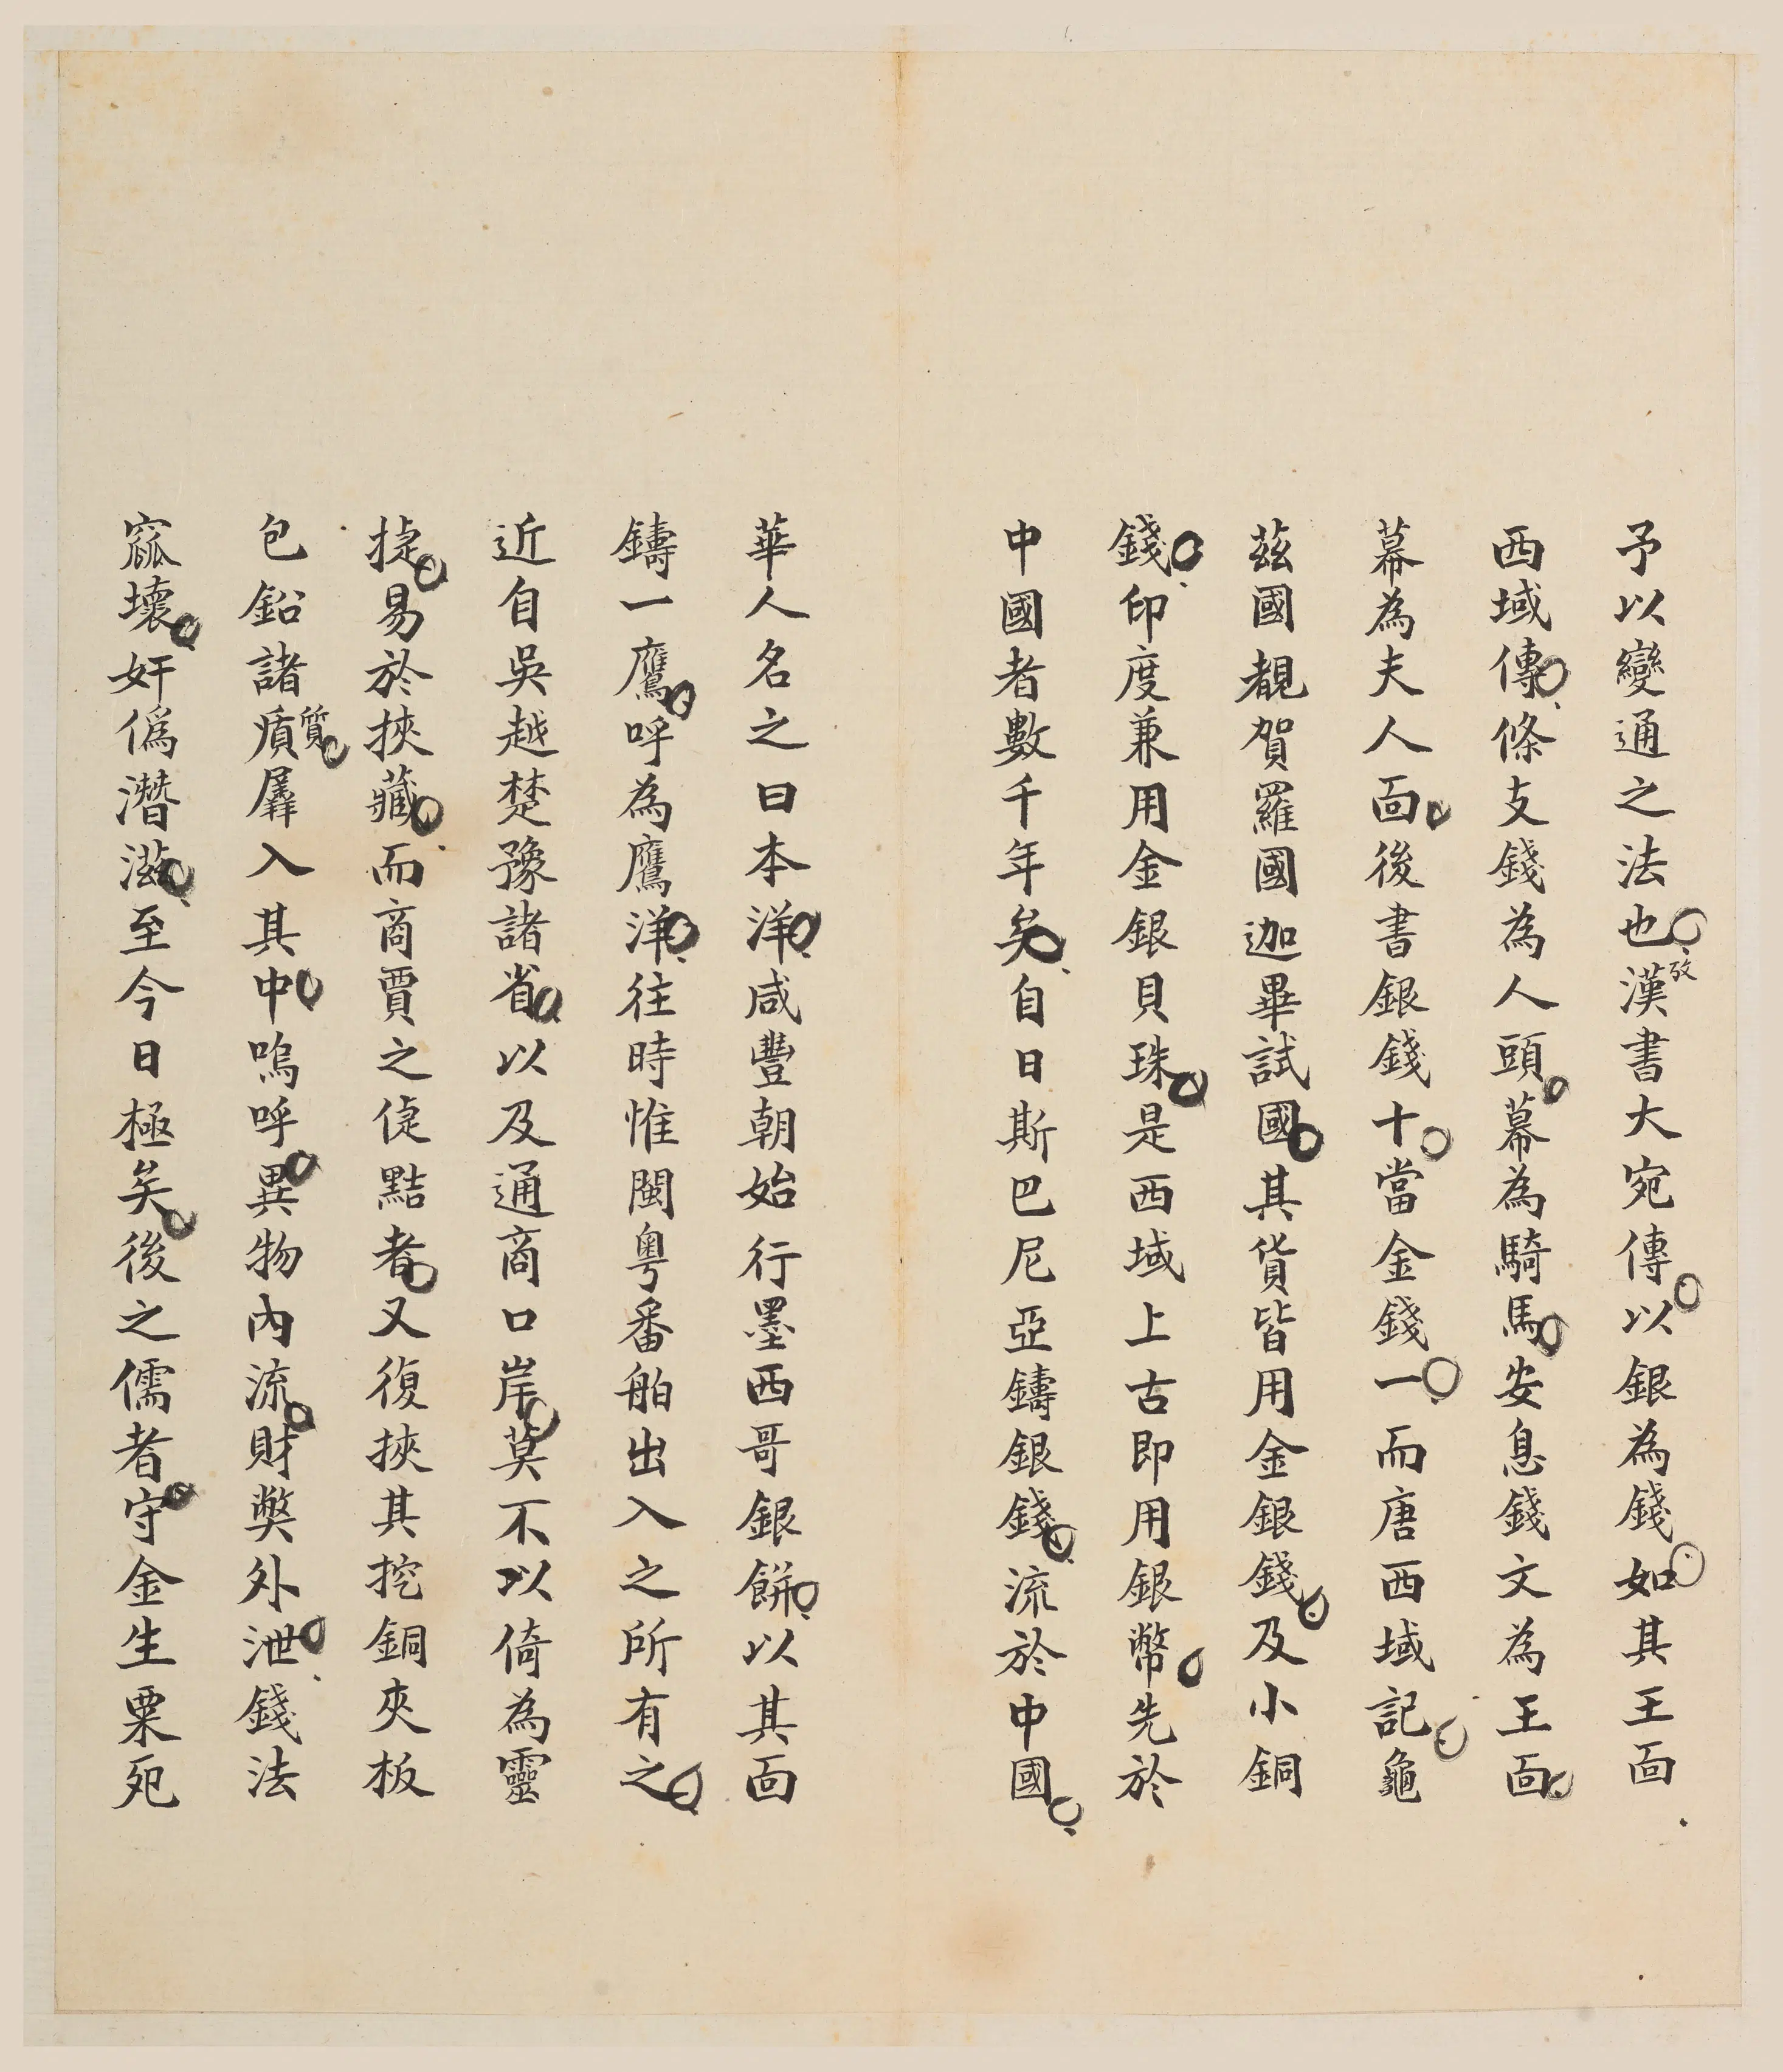 予以變通之法也攷漢書大宛傳以銀為錢如其王面
西域傳條支錢為人頭幕為騎馬安息錢文為王面
幕為夫人面後書銀錢十當金錢一而唐西域記龜
茲國覩賀羅國迦畢試國其貨皆用金銀錢及小銅
錢印度兼用金銀貝珠是西域上古即用銀幣先於
中國者數千年矣自日斯巴尼亞鑄銀錢流於中國
華人名之曰本洋咸豐朝始行墨西哥銀餅以其面
鑄一鷹呼為鷹洋往時惟閩粵番舶出入之所有之
近自吳越楚豫諸省以及通商口岸莫不以倚為靈
捷易於挾藏而商賈之儇黠者又復挾其挖銅夾板
包鉛諸質羼入其中嗚呼異物內流財獘外泄錢法
窳壞奸偽潛滋至今日極矣後之儒者守金生粟死